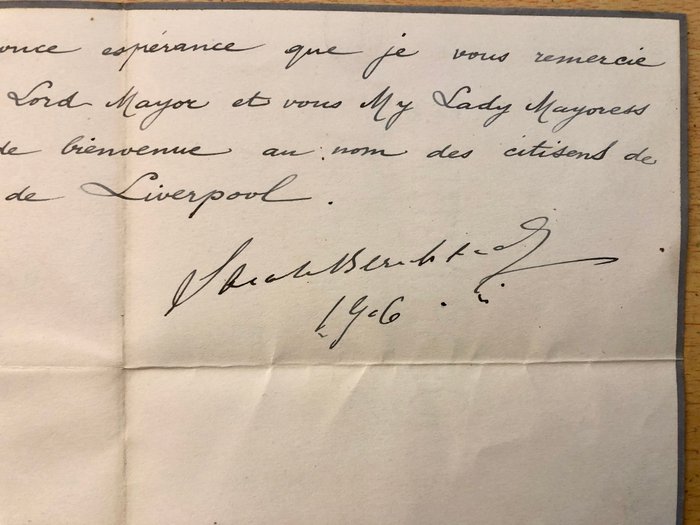 once espérance que je vous remercie
Lord Mayor et vous My Lady Mayoress
de bienvenue au nom des citisens de
de Liverpool.
Sarah Bernhardt
1906